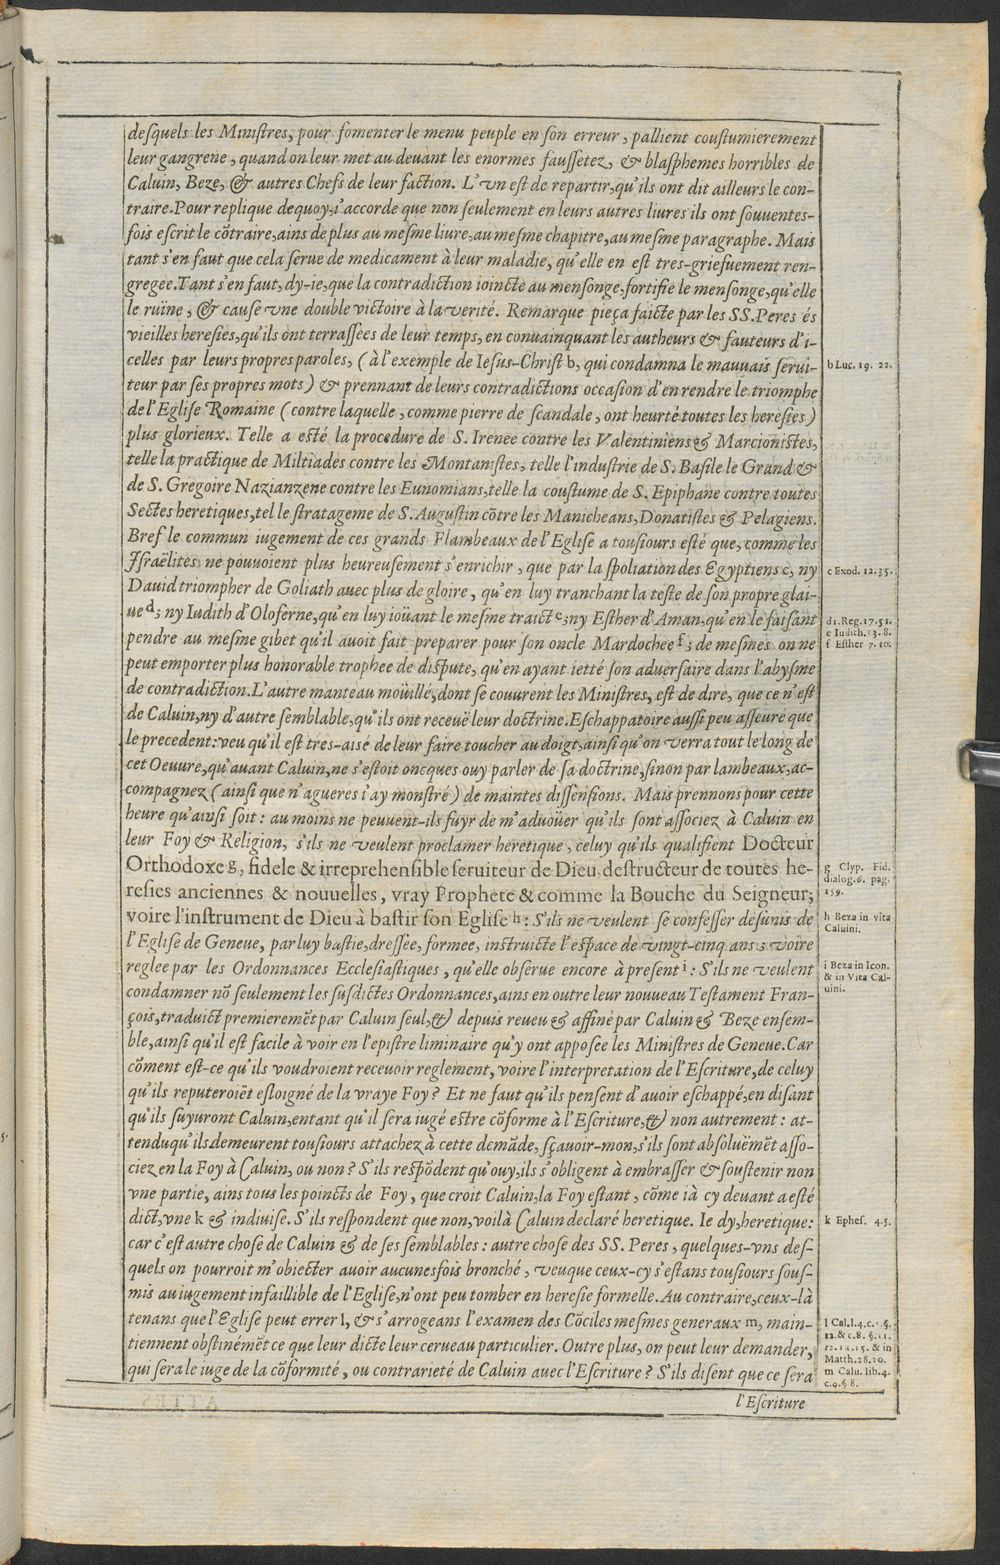 desquels les Ministres, pour fomenter le menu peuple en son erreur, pallient coustumierement
leur gangrene, quand on leur met au deuant les enormes faussetez, & blasphemes horribles de
Caluin, Beze, & autres Chefs de leur faction. L'vn est de repartir, qu'ils ont dit ailleurs le con-
traire. Pour replique dequoy, i'accorde que non seulement en leurs autres liures ils ont souuentes-
fois escrit le cōtraire, ains de plus au mesme liure, au mesme chapitre, au mesme paragraphe. Mais
tant s'en faut que cela serue de medicament à leur maladie, qu'elle en est tres-griefuement ren-
gregee. Tant s'en faut, dy-ie, que la contradiction ioincte au mensonge, fortifie le mensonge, qu'elle
le ruïne, & cause vne double victoire à la verité. Remarque pieça faicte par les SS. Peres és
vieilles heresies, qu'ils ont terrassées de leur temps, en conuainquant les autheurs & fauteurs d'i-
celles par leurs propres paroles, (à l'exemple de Iesus-Christ b, qui condamna le mauuais serui-
teur par ses propres mots) & prennant de leurs contradictions occasion d'en rendre le triomphe
de l'Eglise Romaine (contre laquelle, comme pierre de scandale, ont heurté toutes les heresies)
plus glorieux. Telle a esté la procedure de S. Irenee contre les Valentiniens & Marcionistes,
telle la practique de Miltiades contre les Montanistes, telle l'industrie de S. Basile le Grand &
de S. Gregoire Nazianzene contre les Eunomians, telle la coustume de S. Epiphane contre toutes
Sectes heretiques, tel le stratageme de S. Augustin cōtre les Manicheans, Donatistes & Pelagiens.
Bref le commun iugement de ces grands Flambeaux de l'Eglise a tousiours esté que, comme les
Israëlites ne pouuoient plus heureusement s'enrichir, que par la spoliation des Egyptiens c, ny
Dauid triompher de Goliath auec plus de gloire, qu'en luy tranchant la teste de son propre glai-
ue d; ny Iudith d'Oloferne, qu'en luy ioüant le mesme traict e; ny Esther d'Aman, qu'en le faisant
pendre au mesme gibet qu'il auoit fait preparer pour son oncle Mardochee f; de mesmes on ne
peut emporter plus honorable trophee de dispute, qu'en ayant ietté son aduersaire dans l'abysme
de contradiction. L'autre manteau moüillé, dont se couurent les Ministres, est de dire, que ce n'est
de Caluin, ny d'autre semblable, qu'ils ont receuë leur doctrine. Eschappatoire aussi peu asseuré que
le precedent: veu qu'il est tres-aisé de leur faire toucher au doigt, ainsi qu'on verra tout le long de
cet Oeuure, qu'auant Caluin, ne s'estoit oncques ouy parler de sa doctrine, sinon par lambeaux, ac-
compagnez (ainsi que n'agueres i'ay monstré) de maintes dissensions. Mais prennons pour cette
heure qu'ainsi soit: au moins ne peuuent-ils fuyr de m'aduoüer qu'ils sont associez à Caluin en
leur Foy & Religion, s'ils ne veulent proclamer heretique, celuy qu'ils qualifient Docteur
Orthodoxe g, fidele & irreprehensible seruiteur de Dieu, destructeur de toutes he-
resies anciennes & nouuelles, vray Prophete & comme la Bouche du Seigneur;
voire l'instrument de Dieu à bastir son Eglise h: S'ils ne veulent se confesser desunis de
l'Eglise de Geneue, par luy bastie, dressee, formee, instruicte l'espace de vingt-cinq ans; voire
reglee par les Ordonnances Ecclesiastiques, qu'elle obserue encore à present i: S'ils ne veulent
condamner nō seulement les susdictes Ordonnances, ains en outre leur nouueau Testament Fran-
çois, traduict premieremēt par Caluin seul, & depuis reueu & affiné par Caluin & Beze ensem-
ble, ainsi qu'il est facile à voir en l'epistre liminaire qu'y ont apposee les Ministres de Geneue. Car
cōment est-ce qu'ils voudroient receuoir reglement, voire l'interpretation de l'Escriture, de celuy
qu'ils reputeroiēt esloigné de la vraye Foy? Et ne faut qu'ils pensent d'auoir eschappé, en disant
qu'ils suyuront Caluin, entant qu'il sera iugé estre cōforme à l'Escriture, & non autrement: at-
tendu qu'ils demeurent tousiours attachez à cette demāde, sçauoir-mon, s'ils sont absoluëmēt asso-
ciez en la Foy à Caluin, ou non? S'ils respōdent qu'ouy, ils s'obligent à embrasser & soustenir non
vne partie, ains tous les poincts de Foy, que croit Caluin, la Foy estant, cōme ià cy deuant a esté
dict, vne k & indiuise. S'ils respondent que non, voilà Caluin declaré heretique. Ie dy, heretique:
car c'est autre chose de Caluin & de ses semblables: autre chose des SS. Peres, quelques-vns des-
quels on pourroit m'obiecter auoir aucunesfois bronché, veu que ceux-cy s'estans tousiours sous-
mis au iugement infaillible de l'Eglise, n'ont peu tomber en heresie formelle. Au contraire, ceux-là
tenans que l'Eglise peut errer l, & s'arrogeans l'examen des Cōciles mesmes generaux m, main-
tiennent obstinémēt ce que leur dicte leur cerueau particulier. Outre plus, on peut leur demander,
qui sera le iuge de la cōformité, ou contrarieté de Caluin auec l'Escriture? S'ils disent que ce sera
l'Escriture
b Luc. 19. 22.
c Exod. 12. 35.
d 1. Reg. 17. 51.
e Iudith. 13. 8.
f Esther 7. 10.
g Clyp. Fid.
dialog. 6. pag.
159.
h Beza in vita
Caluini.
i Beza in Icon.
& in Vita Cal-
uini.
k Ephes. 4. 5.
l Cal. l. 4. c. 1. §.
12. & c. 8. §. 11.
12. 14. 15. & in
Matth. 28. 20.
m Calu. lib. 4.
c. 9. § 8.